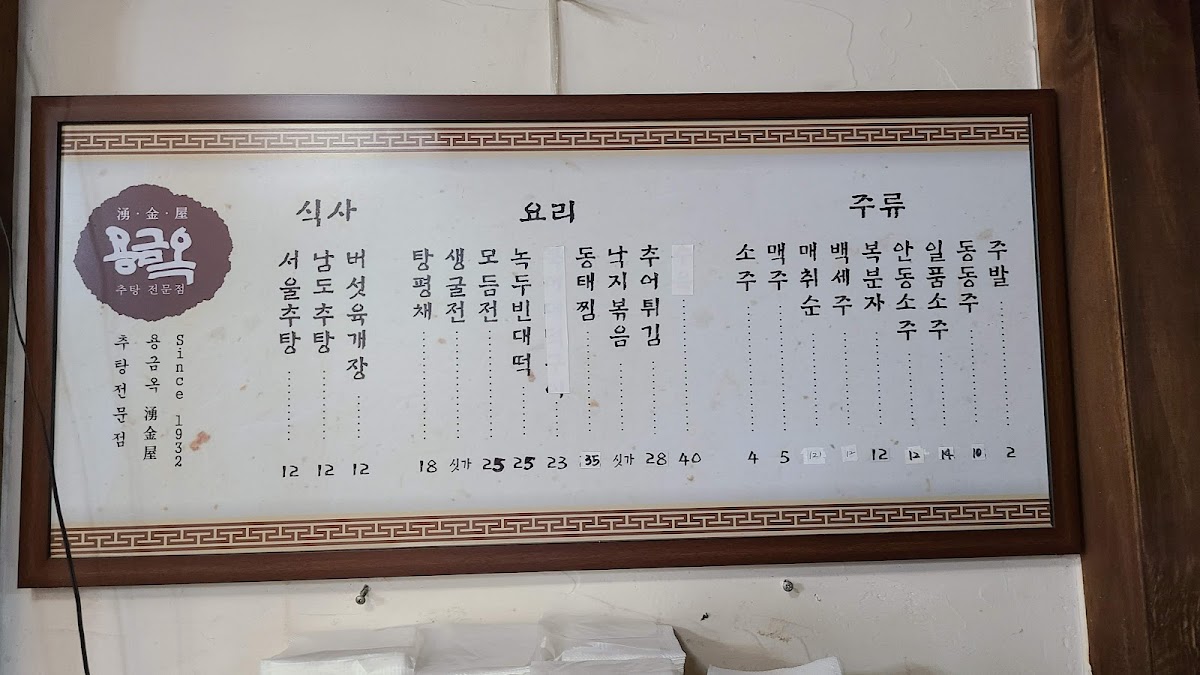 湧·金·屋
용금옥
추탕 전문점
Since 1932
용금옥 湧金屋
추탕전문점
식사
서울추탕 12
남도추탕 12
버섯육개장 12
요리
탕평채 18
생굴전 싯가
모듬전 25
녹두빈대떡 25
23
동태찜 35
낙지볶음 싯가
추어튀김 28
40
주류
소주 4
맥주 5
매취순 12
백세주 12
복분자 12
안동소주 12
일품소주 14
동동주 10
주발 2